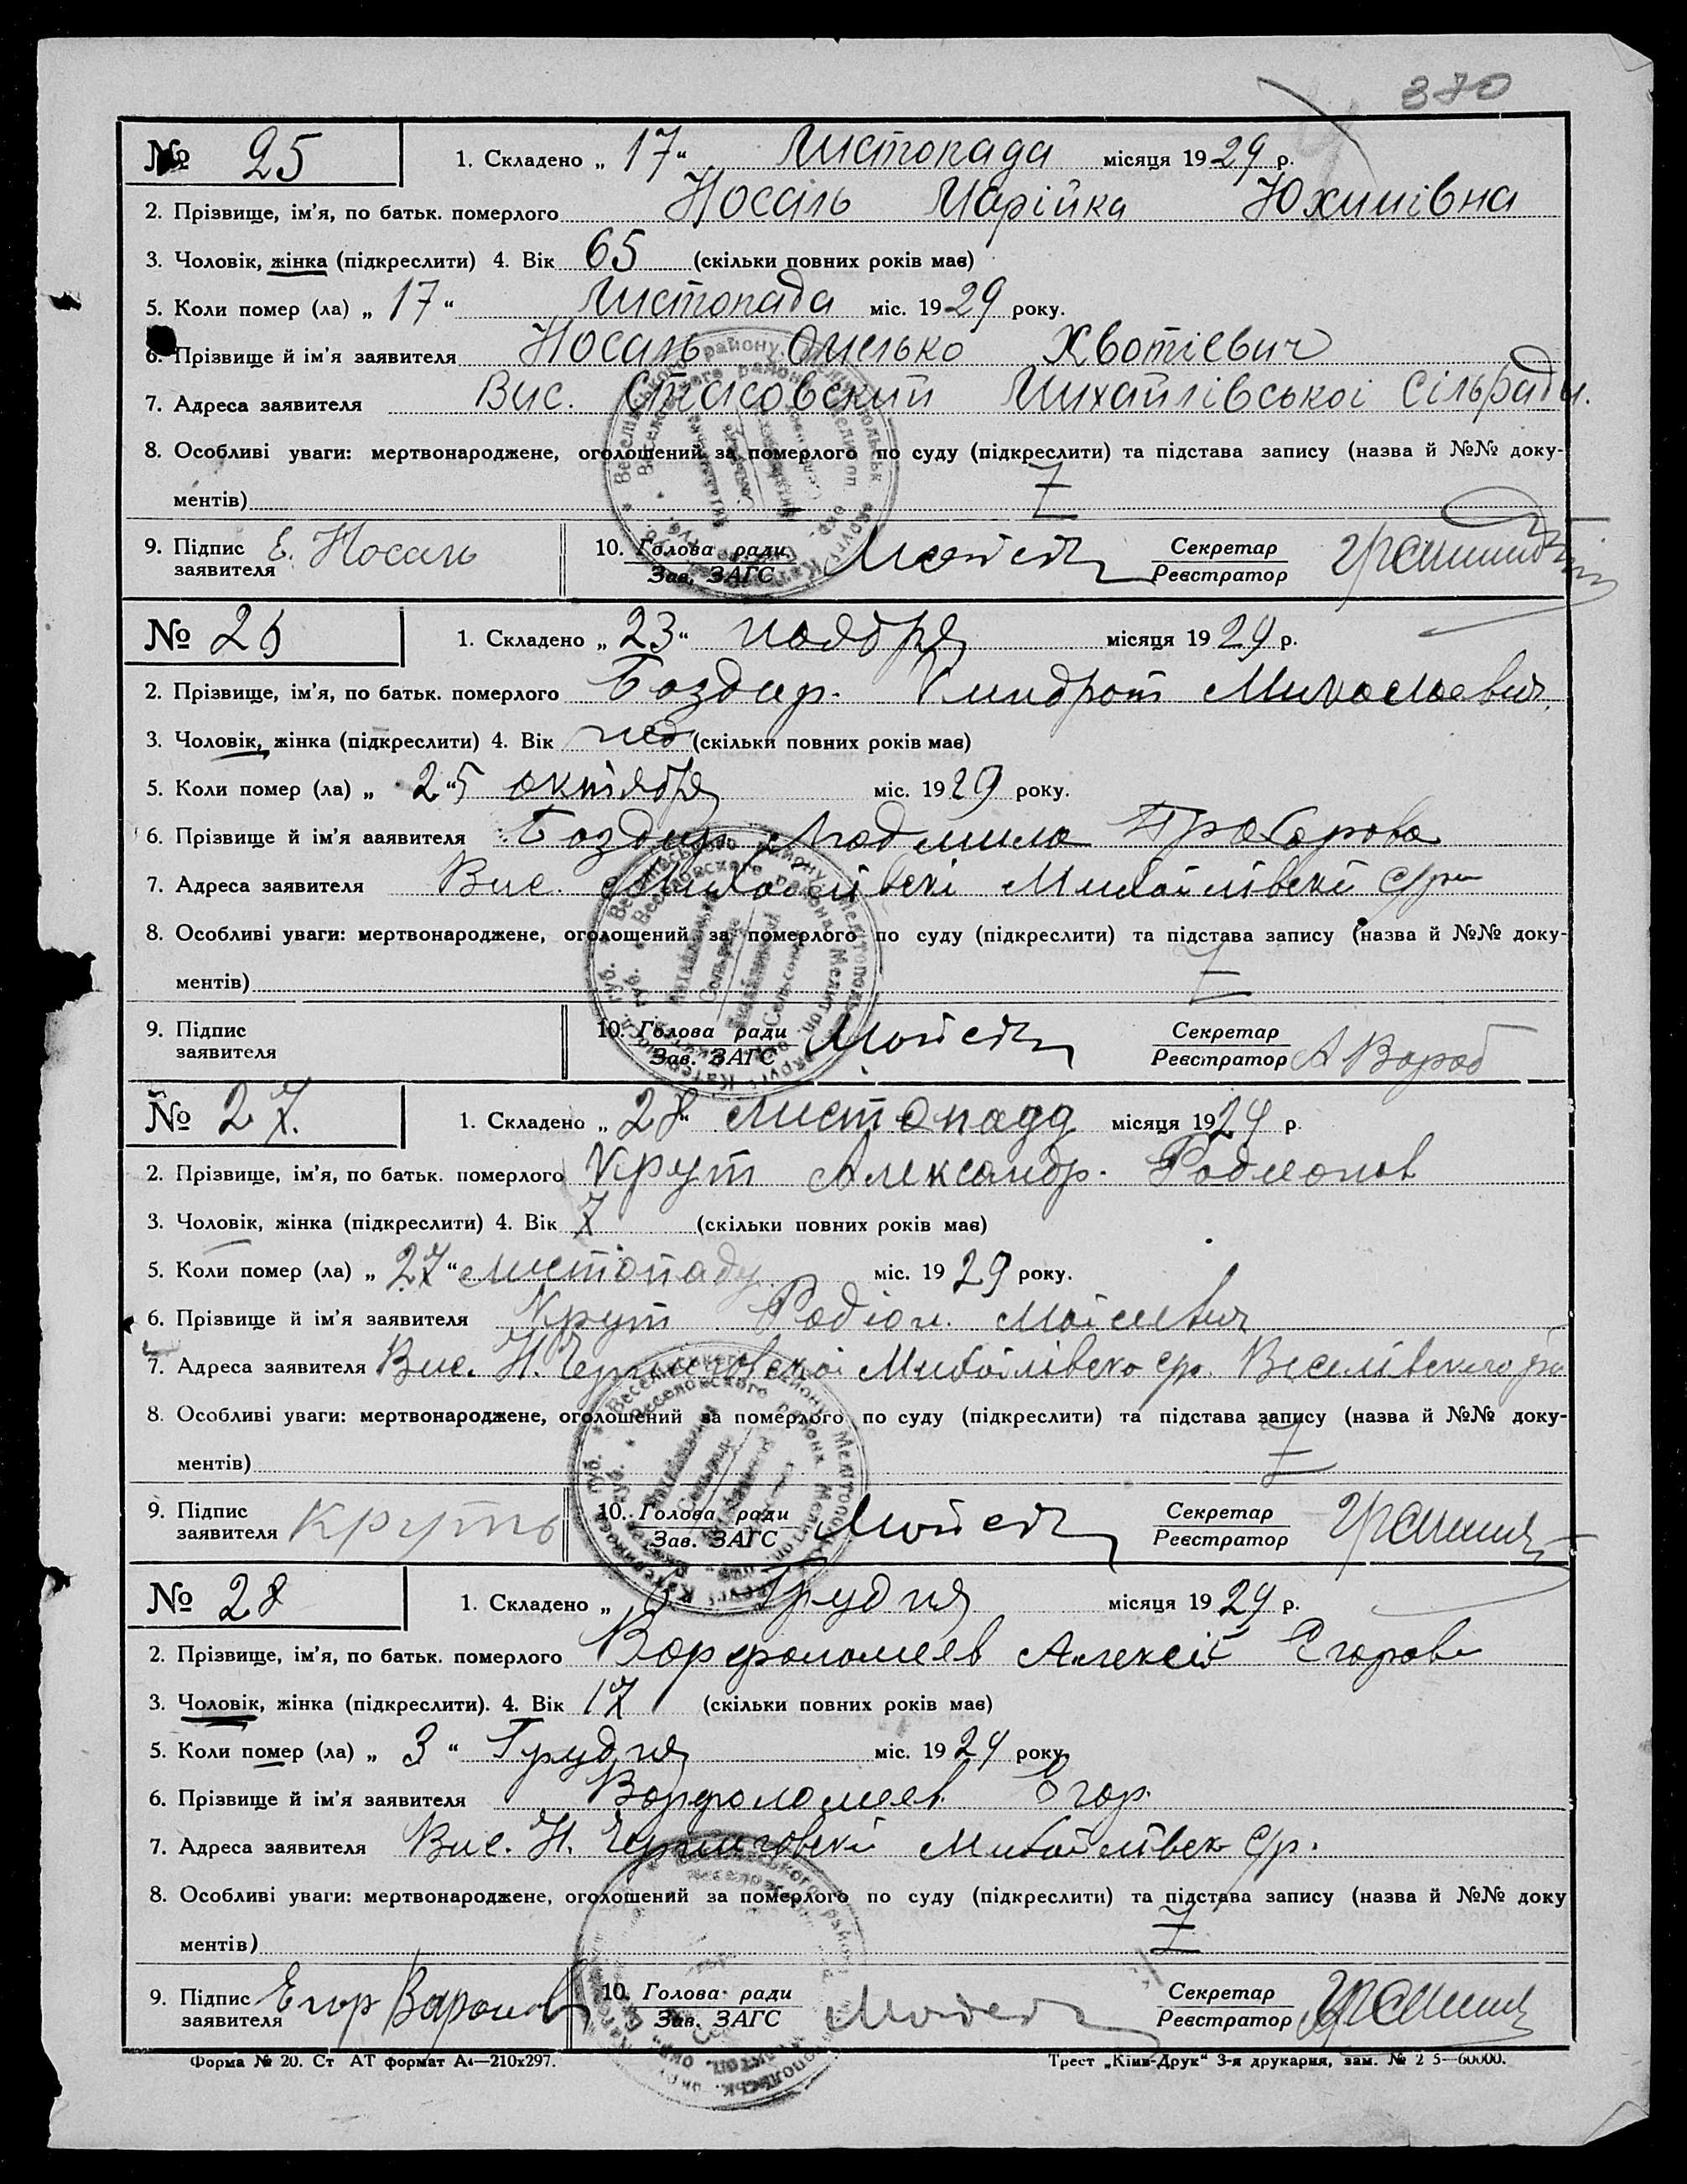 370
№ 25 1. Складено „ 17 “ Листопада місяця 1929 р.
2. Прізвище, ім'я, по батьк. померлого Носаль Марійка Юхимівна
3. Чоловік, жінка (підкреслити) 4. Вік 65 (скільки повних років має)
5. Коли помер (ла) „ 17 “ Листопада міс. 1929 року.
6. Прізвище й ім'я заявителя Носаль Омелько Хвотіевич
7. Адреса заявителя Вис. Михайлівськоі Сільради.
8. Особливі уваги: мертвонароджене, оголошений за померлого по суду (підкреслити) та підстава запису (назва й №№ доку-
ментів)
9. Підпис заявителя Е. Носаль 10. Голова ради Зав. ЗАГС Секретар Реєстратор
№ 26 1. Складено „ 23 “ ноября місяця 1929 р.
2. Прізвище, ім'я, по батьк. померлого Боздир. Миколаевич
3. Чоловік, жінка (підкреслити) 4. Вік (скільки повних років має)
5. Коли помер (ла) „ 25 “ октября міс. 1929 року.
6. Прізвище й ім'я ааявителя Боздир Людмила Прохорова
7. Адреса заявителя Вис. Михайлівскі с/р
8. Особливі уваги: мертвонароджене, оголошений за померлого по суду (підкреслити) та підстава запису (назва й №№ доку-
ментів)
9. Підпис заявителя 10. Голова ради Зав. ЗАГС Секретар Реєстратор
№ 27. 1. Складено „ 28 “ листопада місяця 1929 р.
2. Прізвище, ім'я, по батьк. померлого Крут Александр. Родионов
3. Чоловік, жінка (підкреслити) 4. Вік 7 (скільки повних років має)
5. Коли помер (ла) „ 27 “ листопаду міс. 1929 року.
6. Прізвище й ім'я заявителя Крут Родіон. Моісеевич
7. Адреса заявителя Вис. Н. Черниговскоі Михайлівско с/р. Веселівского
8. Особливі уваги: мертвонароджене, оголошений за померлого по суду (підкреслити) та підстава запису (назва й №№ доку-
ментів)
9. Підпис заявителя Круть 10. Голова ради Зав. ЗАГС Секретар Реєстратор
№ 28 1. Складено „ Грудня місяця 1929 р.
2. Прізвище, ім'я, по батьк. померлого Ворфоломеев Алексей Егоров
3. Чоловік, жінка (підкреслити). 4. Вік 17 (скільки повних років має)
5. Коли помер (ла) „ 3 “ Грудня міс. 1929 року.
6. Прізвище й ім'я заявителя Ворфоломеев Егор.
7. Адреса заявителя Вис. Н. Черниговскі Михайлівск с/р.
8. Особливі уваги: мертвонароджене, оголошений за померлого по суду (підкреслити) та підстава запису (назва й №№ доку
ментів)
9. Підпис заявителя Егор 10. Голова ради Зав. ЗАГС Секретар Реєстратор
Форма № 20. Ст АТ формат А4—210х297. Трест „Київ-Друк“ 3-я друкарня, зам. № 2 5—60000.